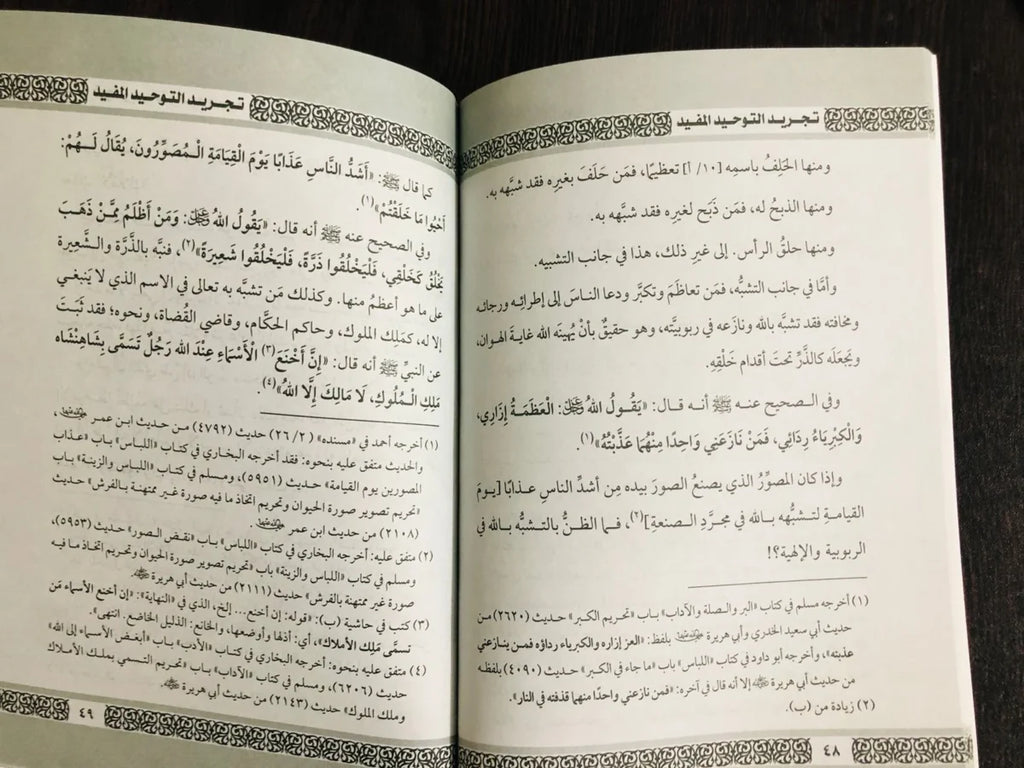 تجريد التوحيد المفيد
ومنها الحَلِفُ باسمِه [١٠/ أ] تعظيمًا، فمَن حَلَفَ بغيرِه فقد شبَّهه به.
ومنها الذبحُ له، فمَن ذَبَح لغيرِه فقد شبَّهه به.
ومنها حلقُ الرأس. إلى غيرِ ذلك، هذا في جانب التشبيه.
وأمَّا في جانب التشبُّه، فمَن تعاظَم وتكبَّر ودعا الناسَ إلى إطرائِه ورجائه
ومخافته فقد تشبَّه بالله ونازَعه في ربوبيَّته، وهو حقيقٌ بأنْ يُهينَه الله غايةَ الهوان،
ويجعَلَه كالذَّرِّ تحتَ أقدام خَلْقِهِ.
وفي الـصحيح عنـه ﷺ أنـه قـال: «يَقُولُ اللهُ ﷻ: العَظَمَةُ إِزَارِي،
وَالْكِبْرِيَاءُ رِدَائِي، فَمَنْ نَازَعَنِي وَاحِدًا مِنْهُمَا عَذَّبْتُهُ»(١).
وإذا كان المصوِّرُ الذي يصنعُ الصورَ بيده مِن أشدِّ الناسِ عذابًا [يـومَ
القيامة لتـشبُّهه بـالله في مجـرَّدِ الـصنعةِ](٢)، فـما الظـنُّ بالتـشبُّه بـالله في
الربوبية والإلهية؟!
(١) أخرجه مسلم في كتاب «البر والـصلة والآداب» بـاب «تحريم الكبر» حديث (٢٦٢٠) مـن
حديث أبي سعيد الخدري وأبي هريرة رضي الله عنهما بلفظ: «العز إزاره والكبرياء رداؤه فمـن ينـازعني
عذبته»، وأخرجه أبو داود في كتاب «اللباس» باب «ما جاء في الكبر» حـديث (٤٠٩٠) بلفظـه
من حديث أبي هريرة رضي الله عنه إلا أنه قال في آخره: «فمن نازعني واحدًا منهما قذفته في النار».
(٢) زيادة من (ب).
٤٨
تجريد التوحيد المفيد
كما قال ﷺ: «أَشَدُّ النَّاسِ عَذَابًا يَوْمَ الْقِيَامَةِ الْـمُصَوِّرُونَ، يُقَالُ لَـهُمْ:
أَحْيُوا مَا خَلَقْتُمْ»(١).
وفي الصحيح عنه ﷺ أنه قال: «يَقُولُ اللهُ ﷻ: وَمَنْ أَظْلَمُ مِمَّنْ ذَهَبَ
يَخْلُقُ كَخَلْقِي، فَلْيَخْلُقُوا ذَرَّةً، فَلْيَخْلُقُوا شَعِيرَةً»(٢)، فنبَّه بالذَّرَّة والشَّعِيرة
على ما هو أعظمُ منها. وكذلك مَن تشبَّه به تعالى في الاسم الذي لا يَنبغي
إلا له، كمَلِك الملوك، وحاكم الحكَّام، وقاضي القُضاة، ونحوه؛ فقد ثبَتَ
عن النبيِّ ﷺ أنه قال: «إِنَّ أَخْنَعَ(٣) الْأَسْمَاءِ عِنْدَ الله رَجُلٌ تَسَمَّى بِشَاهِنْشَاه
مَلِكِ الْـمُلُوكِ، لَا مَالِكَ إِلَّا اللهُ»(٤).
(١) أخرجه أحمد في «مسنده» (٢٦/٢) حديث (٤٧٩٢) مـن حديث ابن عمر رضي الله عنهما،
والحديث متفق عليه بنحوه: فقد أخرجه البخاري في كتاب «اللباس» باب «عذاب
المصورين يوم القيامة» حديث (٥٩٥١)، ومسلم في كتاب «اللباس والزينة» باب
«تحريم تصوير صورة الحيوان وتحريم اتخاذ ما فيه صورة غير ممتهنة بالفرش» حديث
(٢١٠٨) من حديث ابن عمر رضي الله عنهما.
(٢) متفق عليه: أخرجه البخاري في كتاب «اللباس» باب «نقض الصور» حديث (٥٩٥٣)،
ومسلم في كتاب «اللباس والزينة» باب «تحريم تصوير صورة الحيوان وتحريم إتخاذ ما فيه
صورة غير ممتهنة بالفرش» حديث (٢١١١) من حديث أبي هريرة رضي الله عنه.
(٣) كتب في حاشية (ب): «قوله: إن أخنع... إلخ، الذي في «النهاية»: «إن أخنع الأسماء مَن
تسمَّى مَلِك الأملاك»، أي: أذلها وأوضعها، والخانع: الذليل الخاضع. انتهى».
(٤) متفق عليه بنحوه: أخرجه البخاري في كتاب «الأدب» باب «أبغض الأسماء إلى الله»
حديث (٦٢٠٦)، ومسلم في كتاب «الآداب» باب «تحريم التسمي بملـك الأمـلاك
وملك الملوك» حديث (٢١٤٣) من حديث أبي هريرة رضي الله عنه.
٤٩